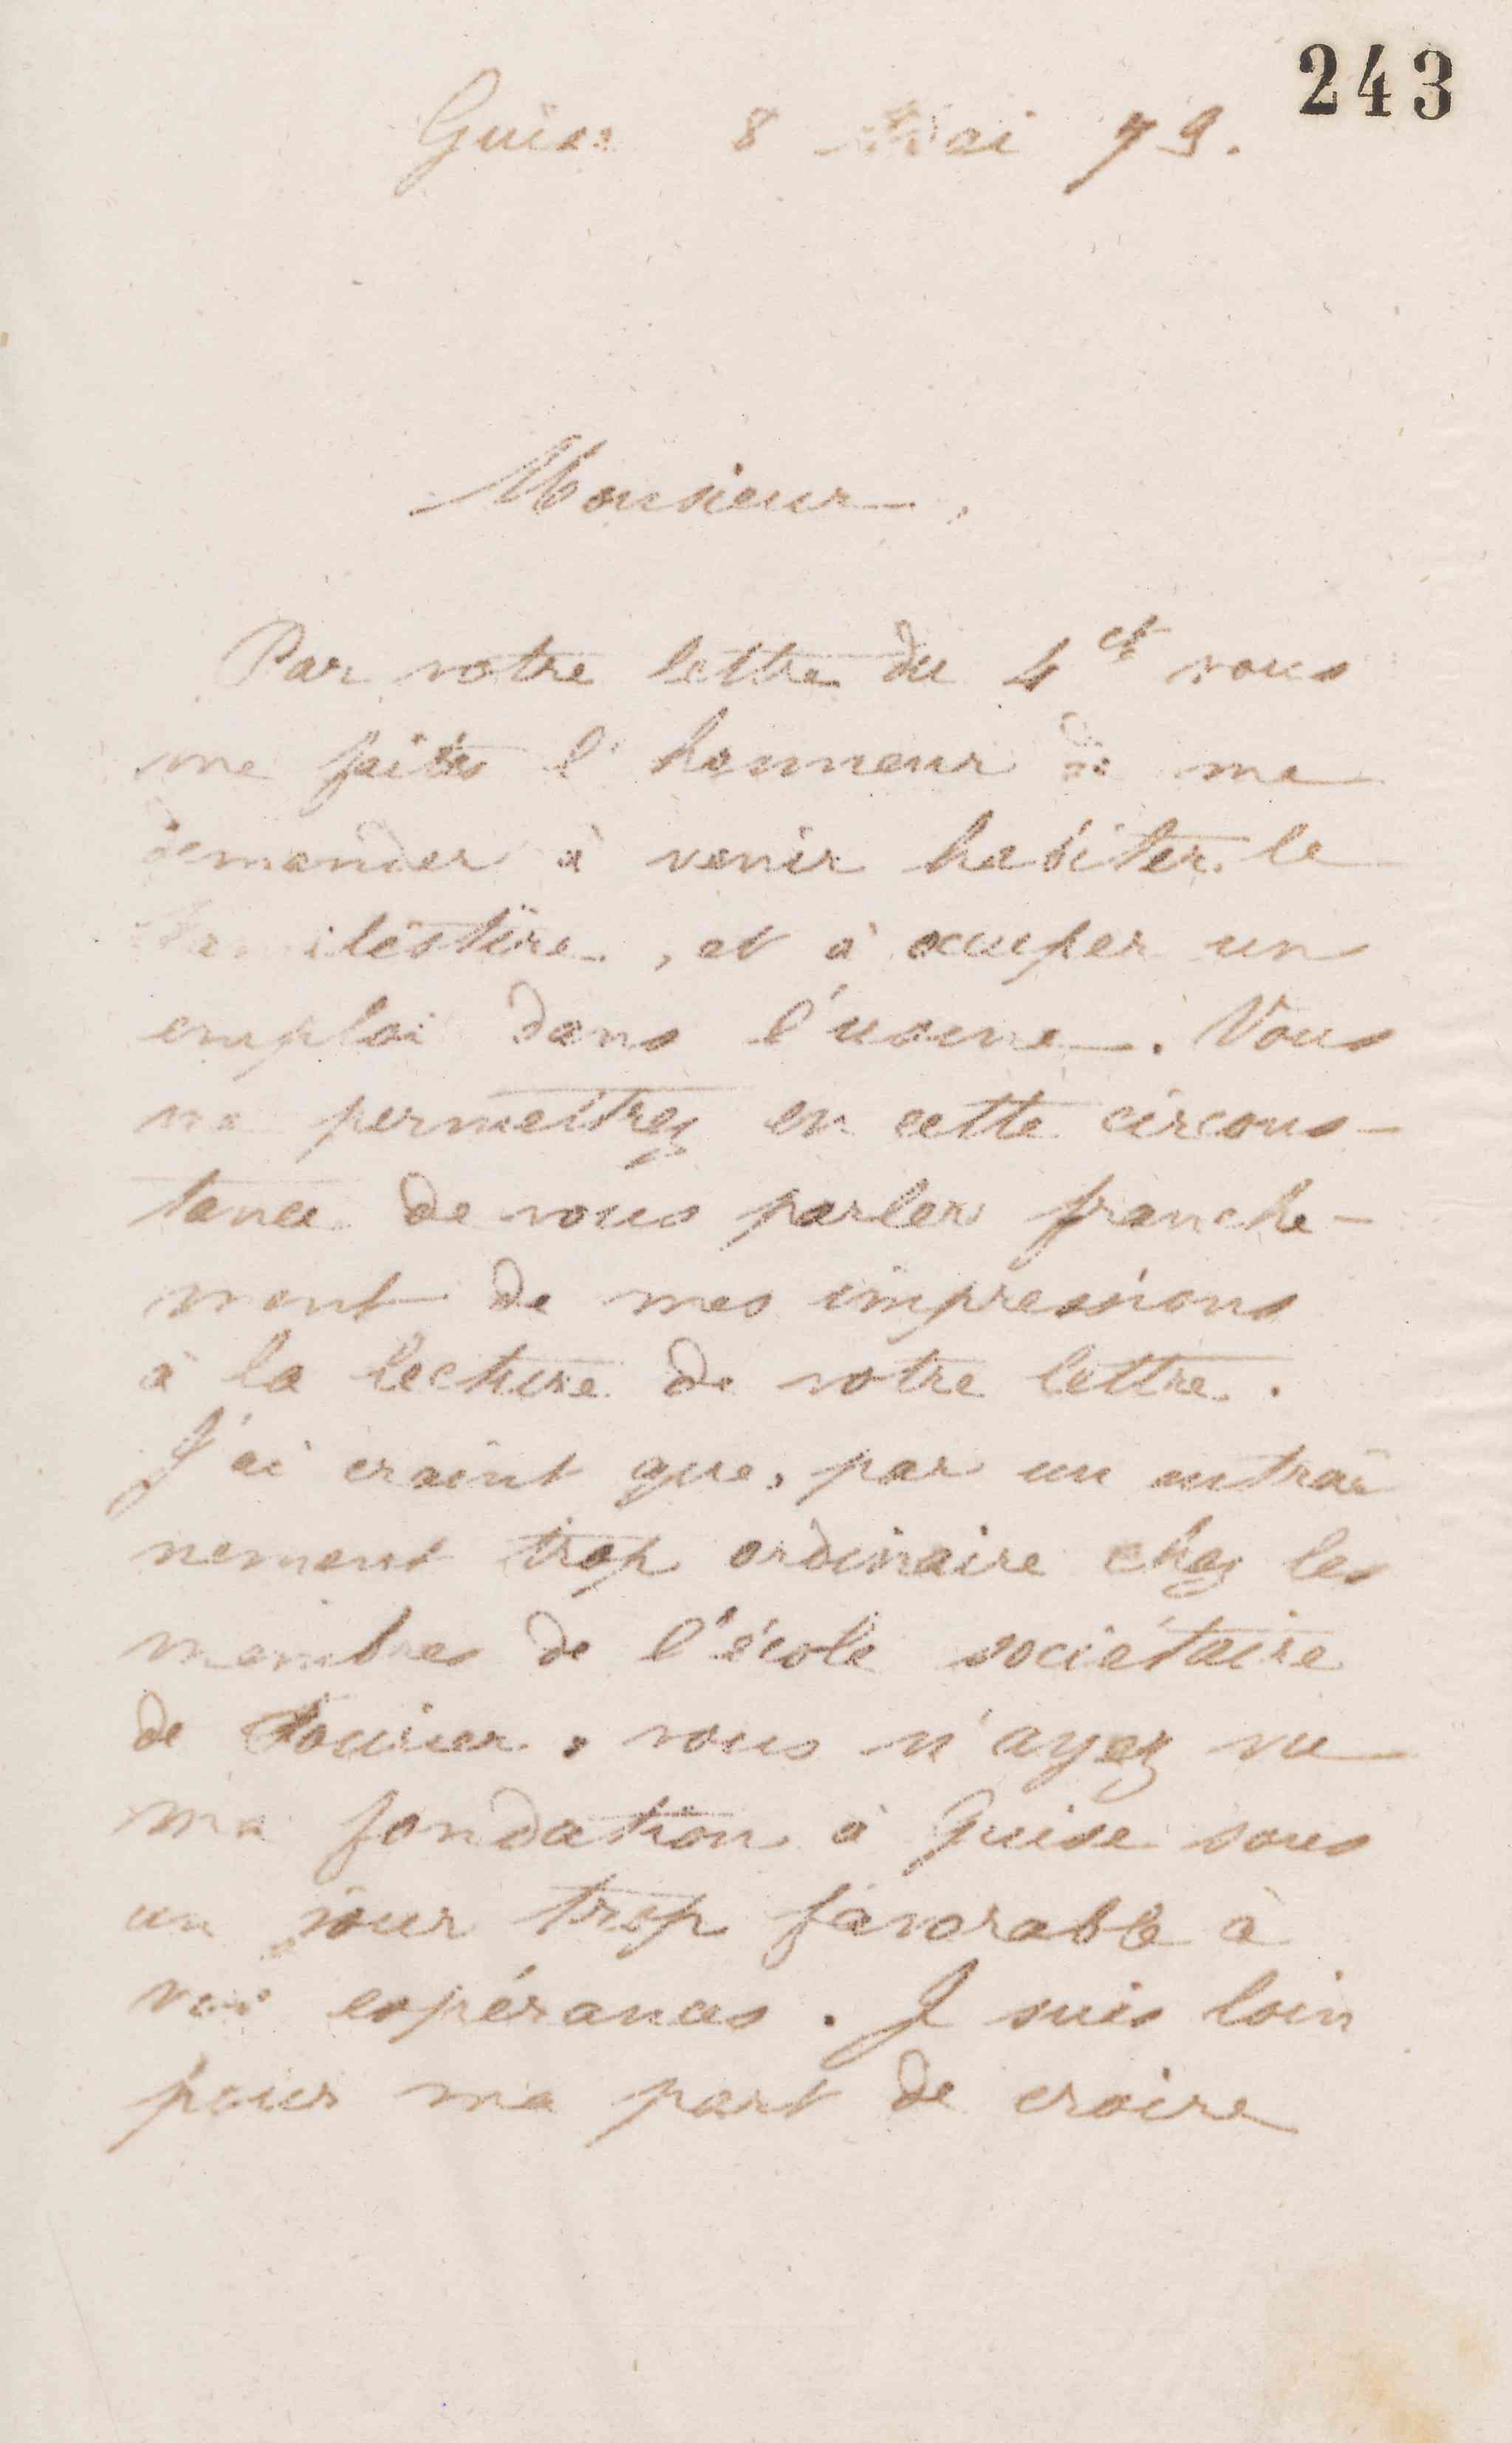 243
Guise 8 Mai 79.
Monsieur,
Par votre lettre du 4 ct vous
me faites l'honneur de me
demander à venir habiter le
Familistère, et à occuper un
emploi dans l'usine. Vous
me permettrez en cette circons-
tance de vous parler franche-
ment de mes impressions
à la lecture de votre lettre.
J'ai craint que, par un entraî
nement trop ordinaire chez les
membres de l'école sociétaire
de Fourier, vous n'ayez vu
ma fondation à Guise sous
un jour trop favorable à
vos espérances. Je suis loin
pour ma part de croire